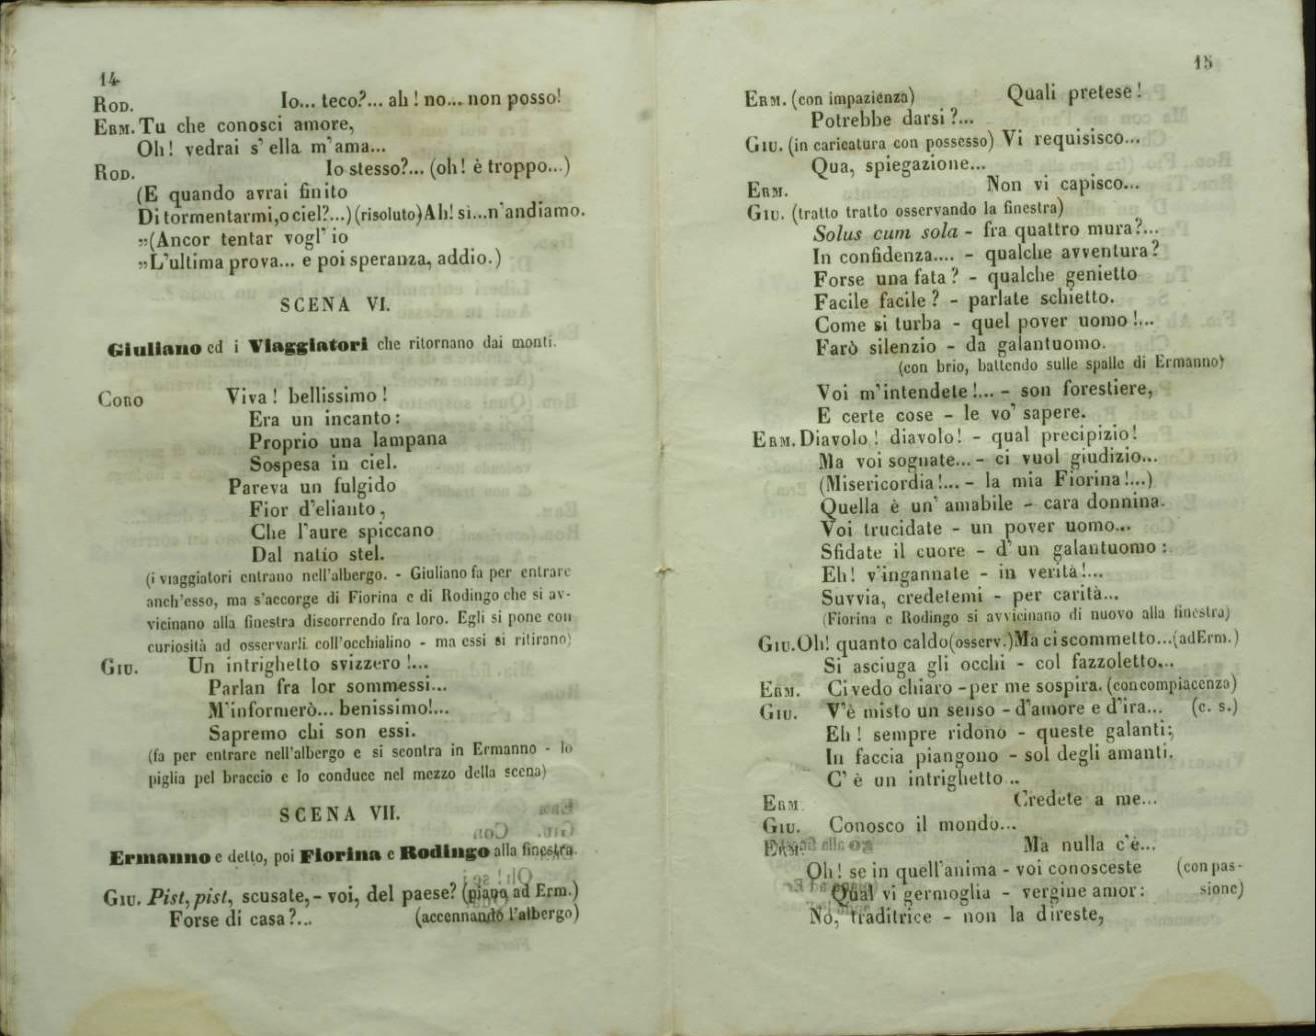 14
ROD. Io... teco?... ah ! no... non posso!
ERM. Tu che conosci amore,
Oh! vedrai s' ella m'ama...
ROD. Io stesso?... (oh! è troppo...)
(E quando avrai finito
Di tormentarmi, o ciel?...) (risoluto) Ah! sì...n'andiamo.
„(Ancor tentar vogl' io
„L'ultima prova... e poi speranza, addio.)
SCENA VI.
Giuliano ed i Viaggiatori che ritornano dai monti.
CORO Viva ! bellissimo !
Era un incanto :
Proprio una lampana
Sospesa in ciel.
Pareva un fulgido
Fior d'elianto,
Che l'aure spiccano
Dal natio stel.
(i viaggiatori entrano nell'albergo. - Giuliano fa per entrare
anch'esso, ma s'accorge di Fiorina e di Rodingo che si av-
vicinano alla finestra discorrendo fra loro. Egli si pone con
curiosità ad osservarli coll'occhialino - ma essi si ritirano)
GIU. Un intrighetto svizzero !...
Parlan fra lor sommessi...
M'informerò... benissimo!...
Sapremo chi son essi.
(fa per entrare nell'albergo e si scontra in Ermanno - lo
piglia pel braccio e lo conduce nel mezzo della scena)
SCENA VII.
Ermanno e detto, poi Fiorina e Rodingo alla finestra.
GIU. Pist, pist, scusate, - voi, del paese? (piano ad Erm.)
Forse di casa?... (accennando l'albergo)
15
ERM. (con impazienza) Quali pretese !
Potrebbe darsi ?...
GIU. (in caricatura con possesso) Vi requisisco...
Qua, spiegazione...
ERM. Non vi capisco...
GIU. (tratto tratto osservando la finestra)
Solus cum sola - fra quattro mura?...
In confidenza.... - qualche avventura?
Forse una fata ? - qualche genietto
Facile facile ? - parlate schietto.
Come si turba - quel pover uomo !...
Farò silenzio - da galantuomo.
(con brio, battendo sulle spalle di Ermanno)
Voi m'intendete !... - son forestiere,
E certe cose - le vo' sapere.
ERM. Diavolo ! diavolo! - qual precipizio!
Ma voi sognate... - ci vuol giudizio...
(Misericordia !... - la mia Fiorina !...)
Quella è un' amabile - cara donnina.
Voi trucidate - un pover uomo...
Sfidate il cuore - d' un galantuomo :
Eh! v'ingannate - in verità!...
Suvvia, credetemi - per carità...
(Fiorina e Rodingo si avvicinano di nuovo alla finestra)
GIU. Oh! quanto caldo (osserv.) Ma ci scommetto... (ad Erm.)
Si asciuga gli occhi - col fazzoletto...
ERM. Ci vedo chiaro - per me sospira. (con compiacenza)
GIU. V'è misto un senso - d'amore e d'ira... (c. s.)
Eh ! sempre ridono - queste galanti;
In faccia piangono - sol degli amanti.
C' è un intrighetto ..
ERM. Credete a me...
GIU. Conosco il mondo...
ERM. Ma nulla c'è...
Oh! se in quell'anima - voi conosceste (con pas-
Qual vi germoglia - vergine amor : sione)
No, traditrice - non la direste,